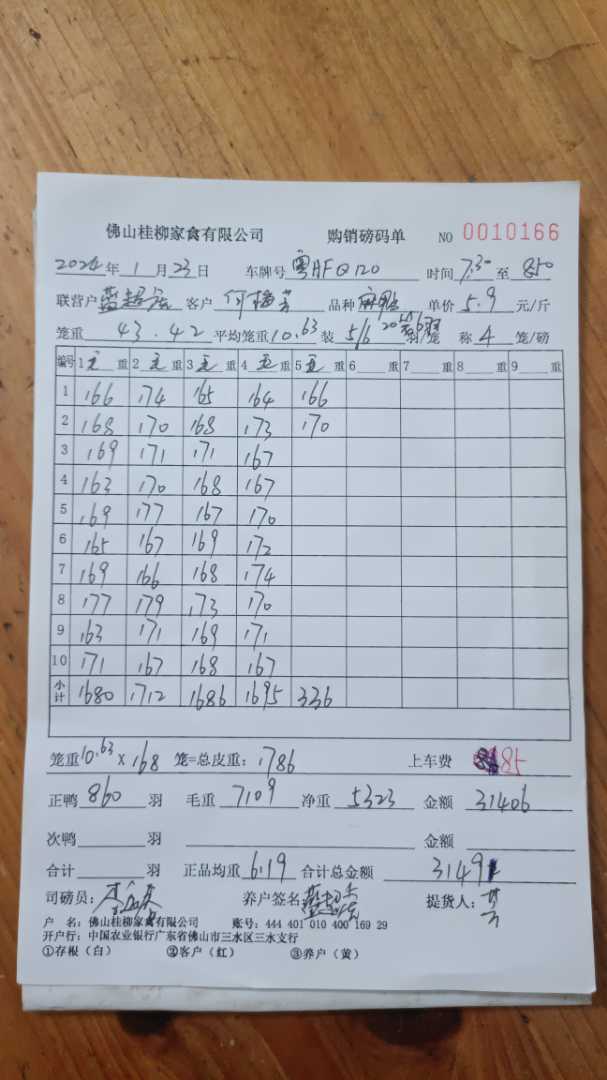 佛山桂柳家禽有限公司 购销磅码单 NO 0010166
2024年1月23日 车牌号 粤AFQ120 时间 7.30 至 850
联营户 蓝超 客户 何梅芳 品种 麻鸭 单价 5.9 元/斤
笼重 43.42 平均笼重 10.63 装 5/6 羽/笼 称 4 笼/磅
编号 1 重 2 重 3 重 4 重 5 重 6 重 7 重 8 重 9 重
1 166 174 165 164 166
2 168 170 168 173 170
3 169 171 171 167
4 163 170 168 167
5 169 177 167 170
6 165 167 169 172
7 169 166 168 174
8 177 179 173 170
9 163 171 169 171
10 171 167 168 167
小计 1680 1712 1686 1695 336
笼重 10.63 x 168 笼=总皮重: 1786 上车费 85
正鸭 860 羽 毛重 7109 净重 5323 金额 31406
次鸭 羽 金额
合计 羽 正品均重 6.19 合计总金额 31491
司磅员: 养户签名: 蓝超 提货人:
户 名: 佛山桂柳家禽有限公司 账号: 444 401 010 400 169 29
开户行: 中国农业银行广东省佛山市三水区三水支行
①存根(白) ②客户(红) ③养户(黄)